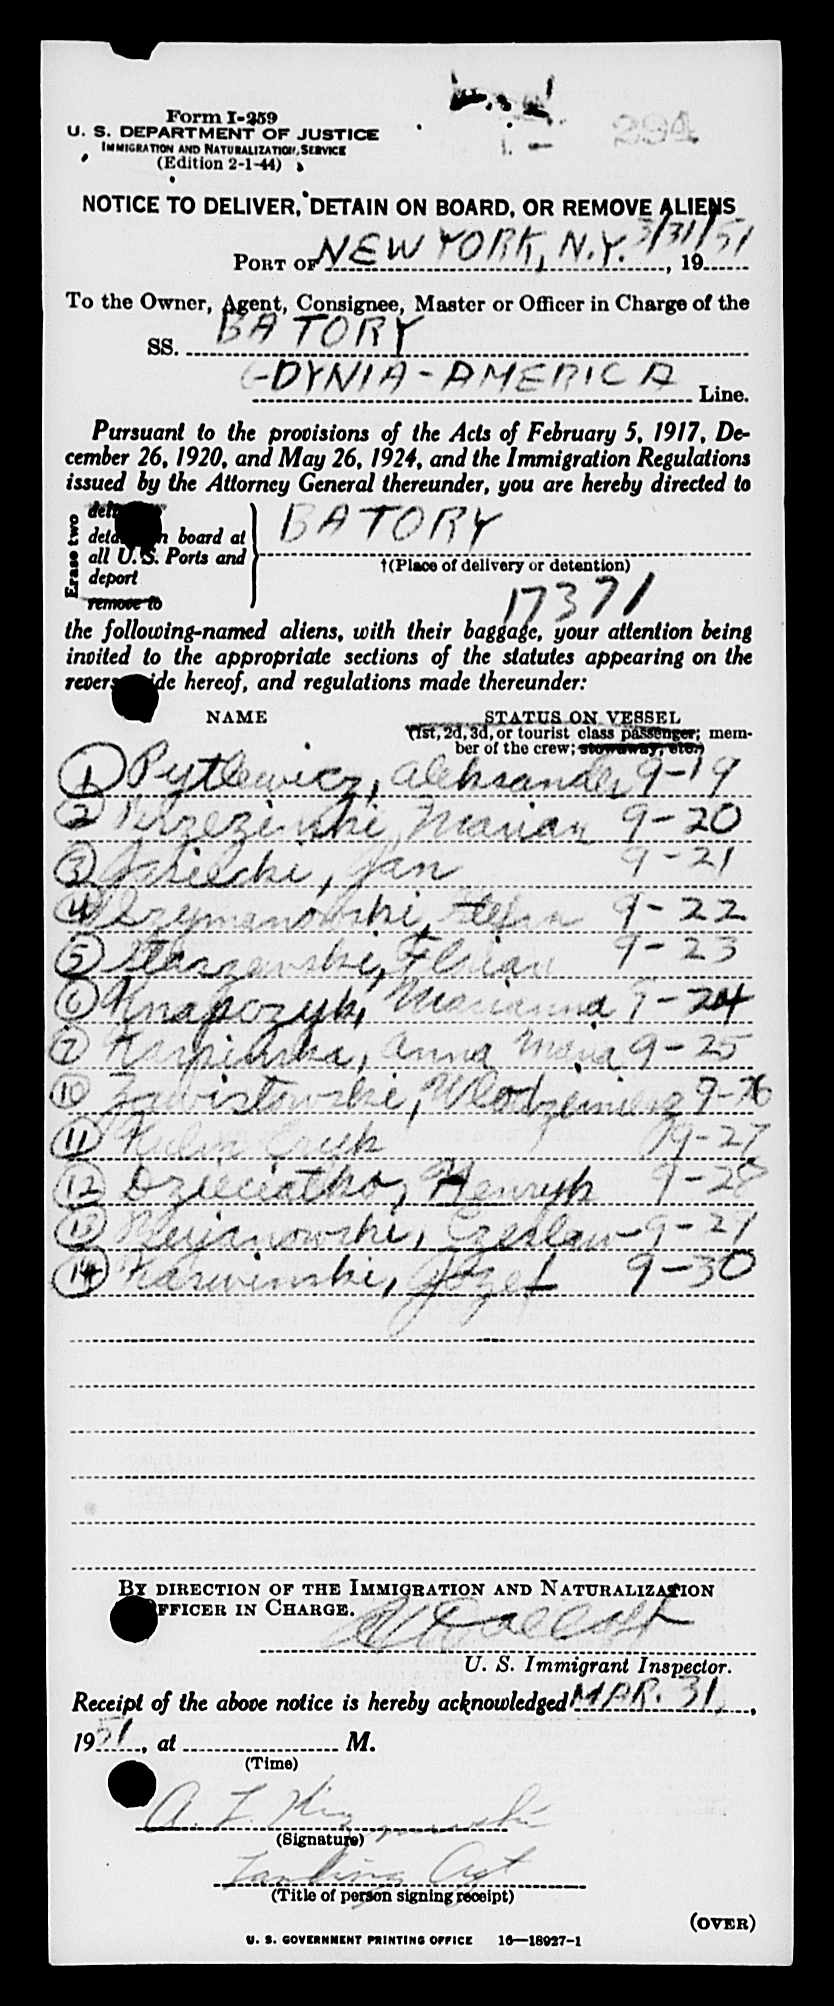 294
Form I-259
U. S. DEPARTMENT OF JUSTICE
IMMIGRATION AND NATURALIZATION SERVICE
(Edition 2-1-44)
NOTICE TO DELIVER, DETAIN ON BOARD, OR REMOVE ALIENS
PORT OF NEW YORK, N.Y. 3/31/51, 19
To the Owner, Agent, Consignee, Master or Officer in Charge of the
SS. BATORY
GDYNIA-AMERICA Line.
Pursuant to the provisions of the Acts of February 5, 1917, De-
cember 26, 1920, and May 26, 1924, and the Immigration Regulations
issued by the Attorney General thereunder, you are hereby directed to
Erase two
board at
all U. S. Ports and
deport
remove to
BATORY
†(Place of delivery or detention)
17371
the following-named aliens, with their baggage, your attention being
invited to the appropriate sections of the statutes appearing on the
hereof, and regulations made thereunder:
NAME STATUS ON VESSEL
(1st, 2d, 3d, or tourist class passenger; mem-
ber of the crew; stowaway, etc.)
1 Pytlewicz, Aleksander 9-19
2 Brzezinski, Marian 9-20
3 Jasielski, Jan 9-21
4 Szymanowski, Stefan 9-22
5 Starzewski, Florian 9-23
6 Knapczyk, Marianna 9-24
7 Karpinska, Anna Maria 9-25
10 Zawistowski, Wlodzimierz 9-26
11 Eryk 9-27
12 Dzieciatko, Henryk 9-28
13 Czeslaw 9-29
14 Karwinski, Jozef 9-30
BY DIRECTION OF THE IMMIGRATION AND NATURALIZATION
OFFICER IN CHARGE.
U. S. Immigrant Inspector.
Receipt of the above notice is hereby acknowledged MAR. 31,
1951, at M.
(Time)
A. L.
(Signature)
Landing Agt
(Title of person signing receipt)
(OVER)
U. S. GOVERNMENT PRINTING OFFICE 16—18927-1